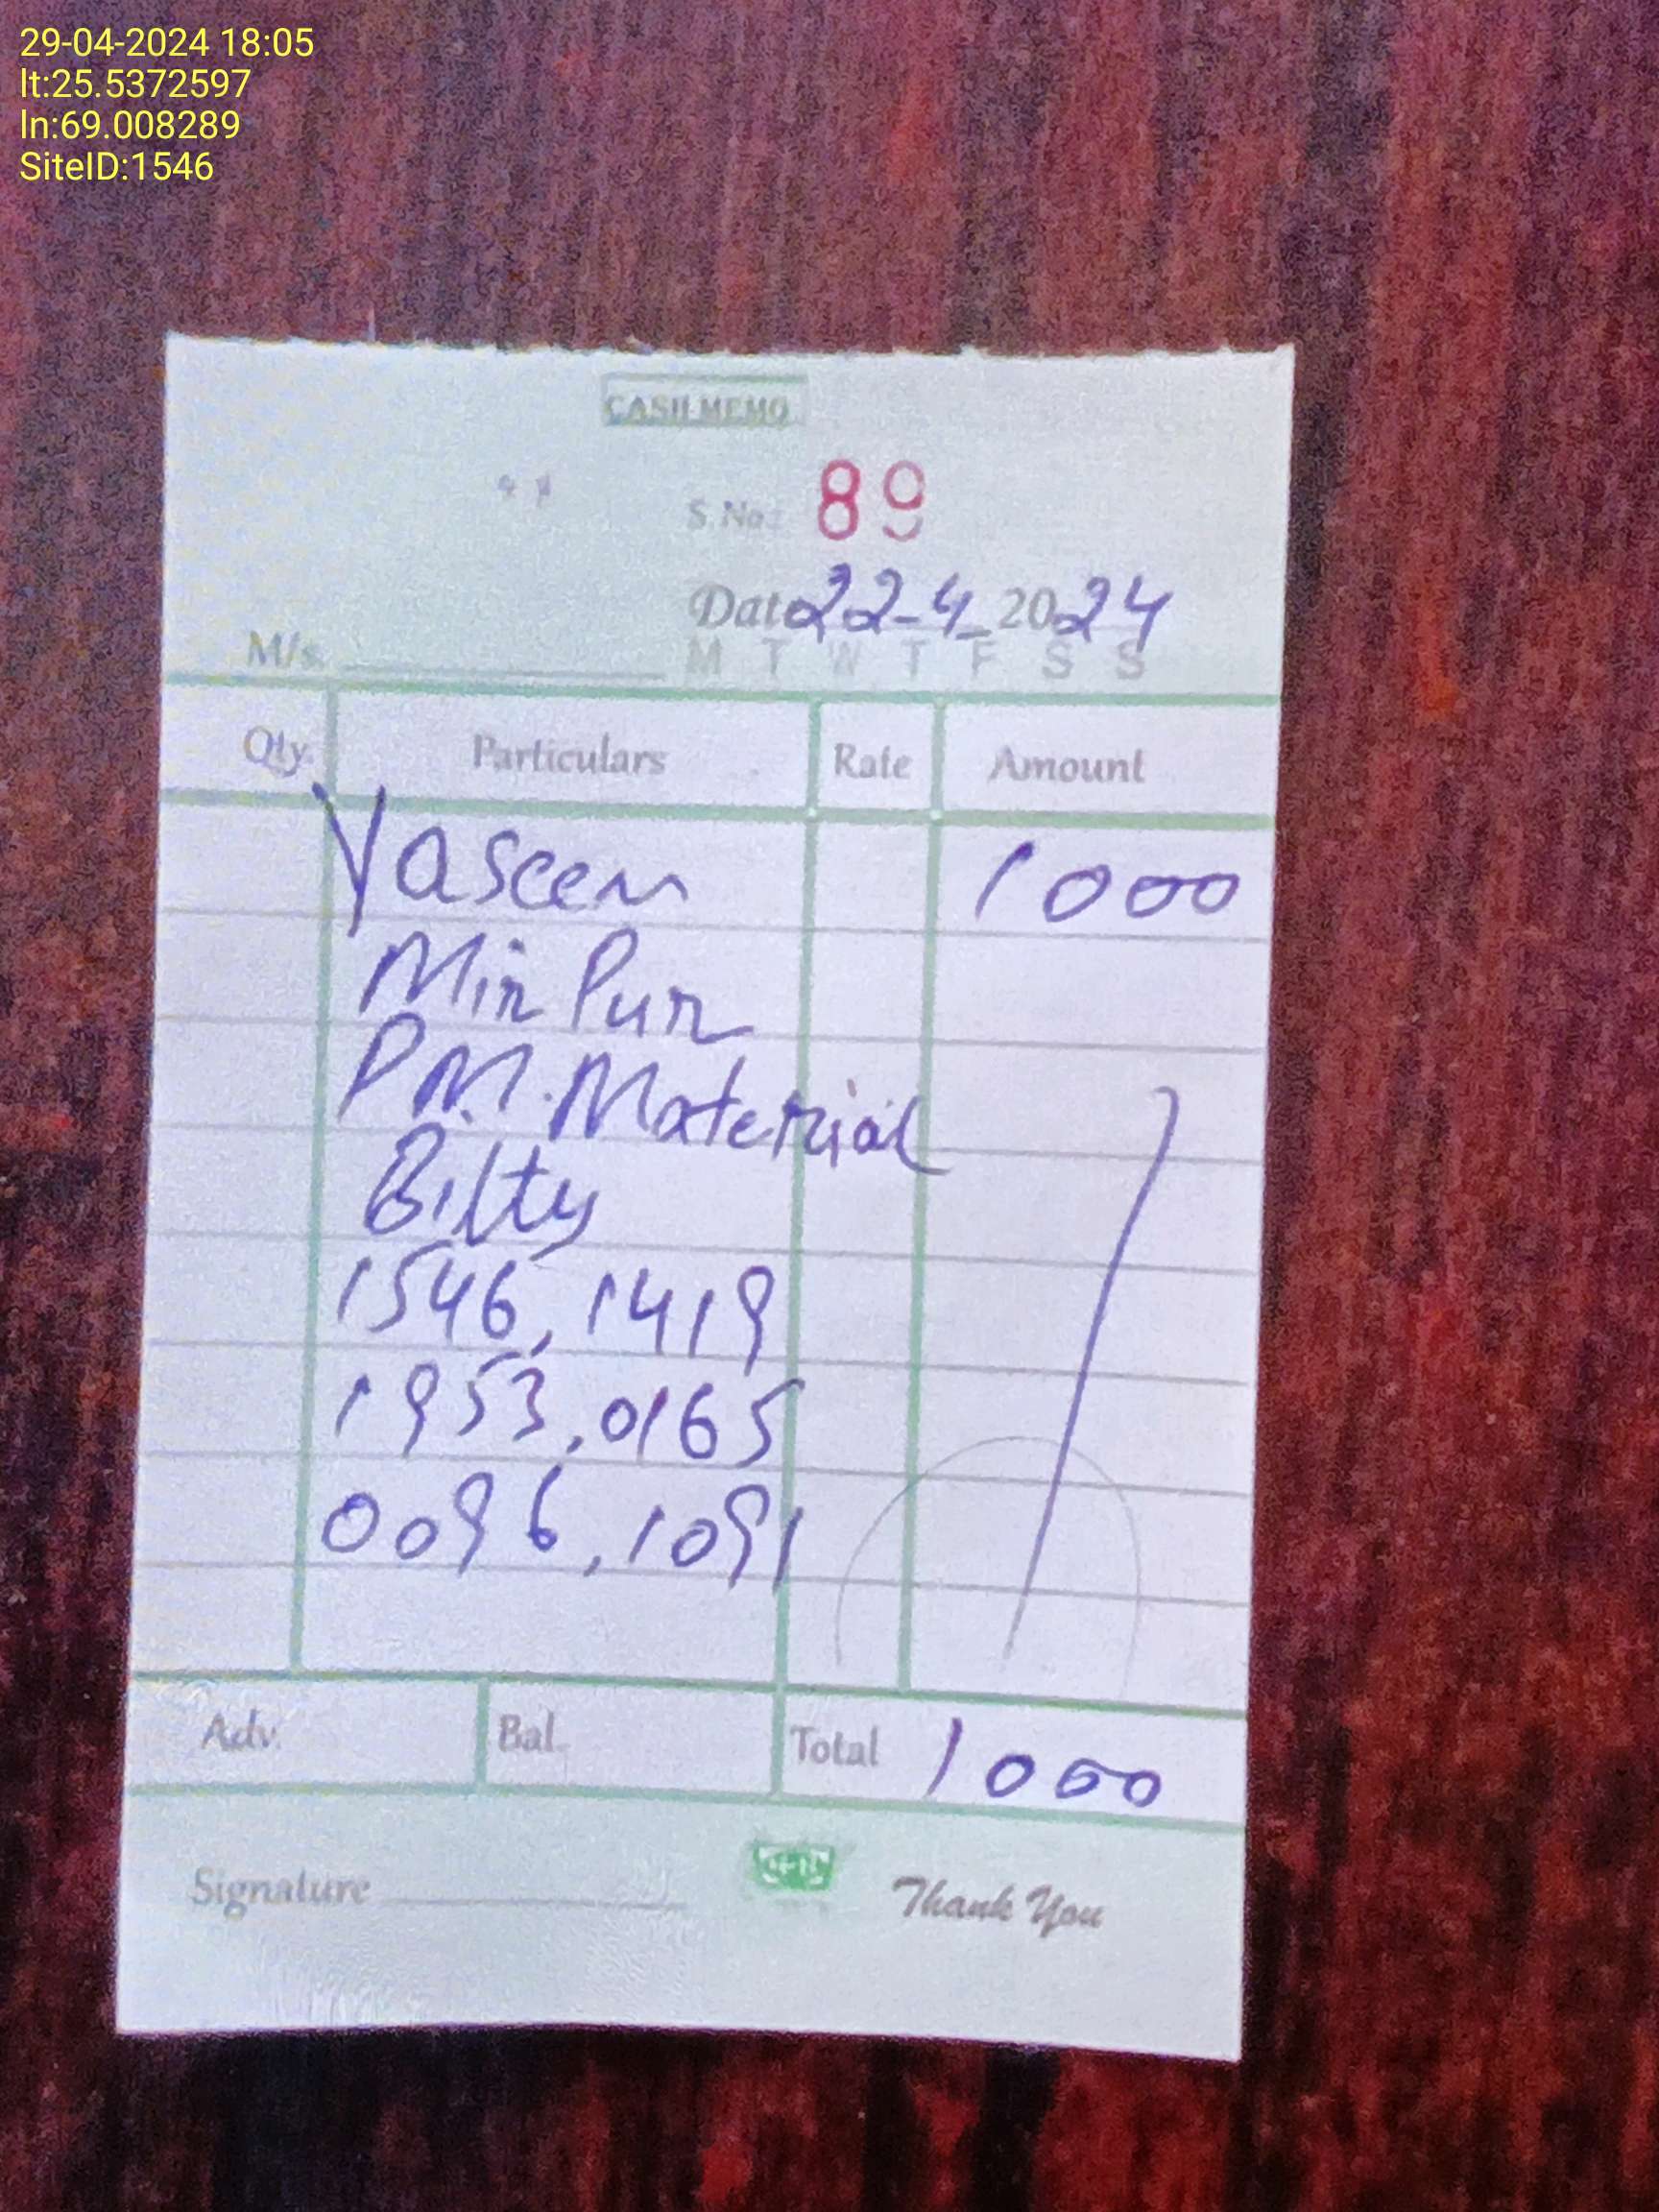 29-04-2024 18:05
lt:25.5372597
ln:69.008289
SiteID:1546
CASH MEMO
S.No: 89
Date 22-4-2024
M/s.
M T W T F S S
Qty. Particulars Rate Amount
Yaseen 1000
Mir Pur
P.M. Material
Bilty
1546, 1419
1953, 0165
0096, 1091
Adv. Bal. Total 1000
Signature Thank You